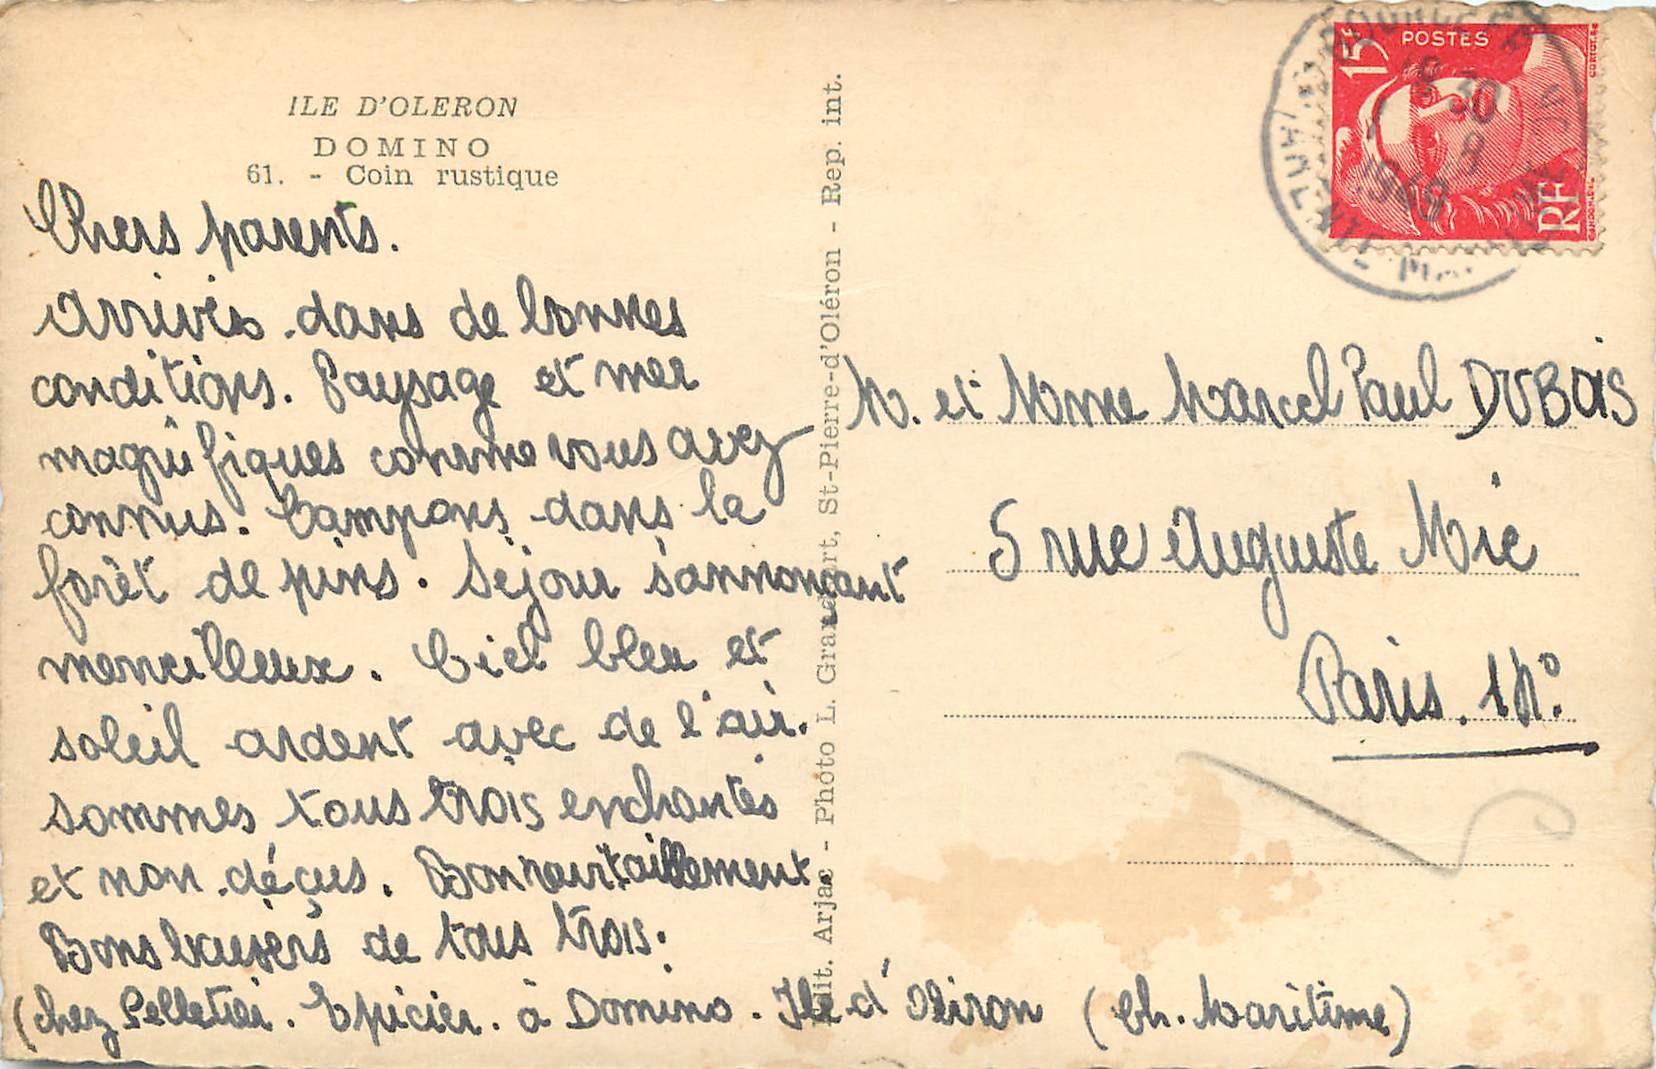 ILE D'OLERON
DOMINO
61. - Coin rustique
Chers parents.
Arrivés dans de bonnes
conditions. Paysage et mer
magnifiques comme vous avez
connus. Campons dans la
forêt de pins. Séjour s'annonçant
merveilleux. Ciel bleu et
soleil ardent avec de l'air.
Sommes tous trois enchantés
et non déçus. Bon ravitaillement.
Bons baisers de tous trois.
(chez Pelletier. Epicier. à Domino. Ile d'Oléron (Ch. Maritime)
Edit. Arjac - Photo L. Grandfort, St-Pierre-d'Oléron - Rep. int.
15f POSTES
RF
18 30
1 8
1949
M. et Mme Marcel Paul DUBOIS
5 rue Auguste Mie
Paris. 14°.